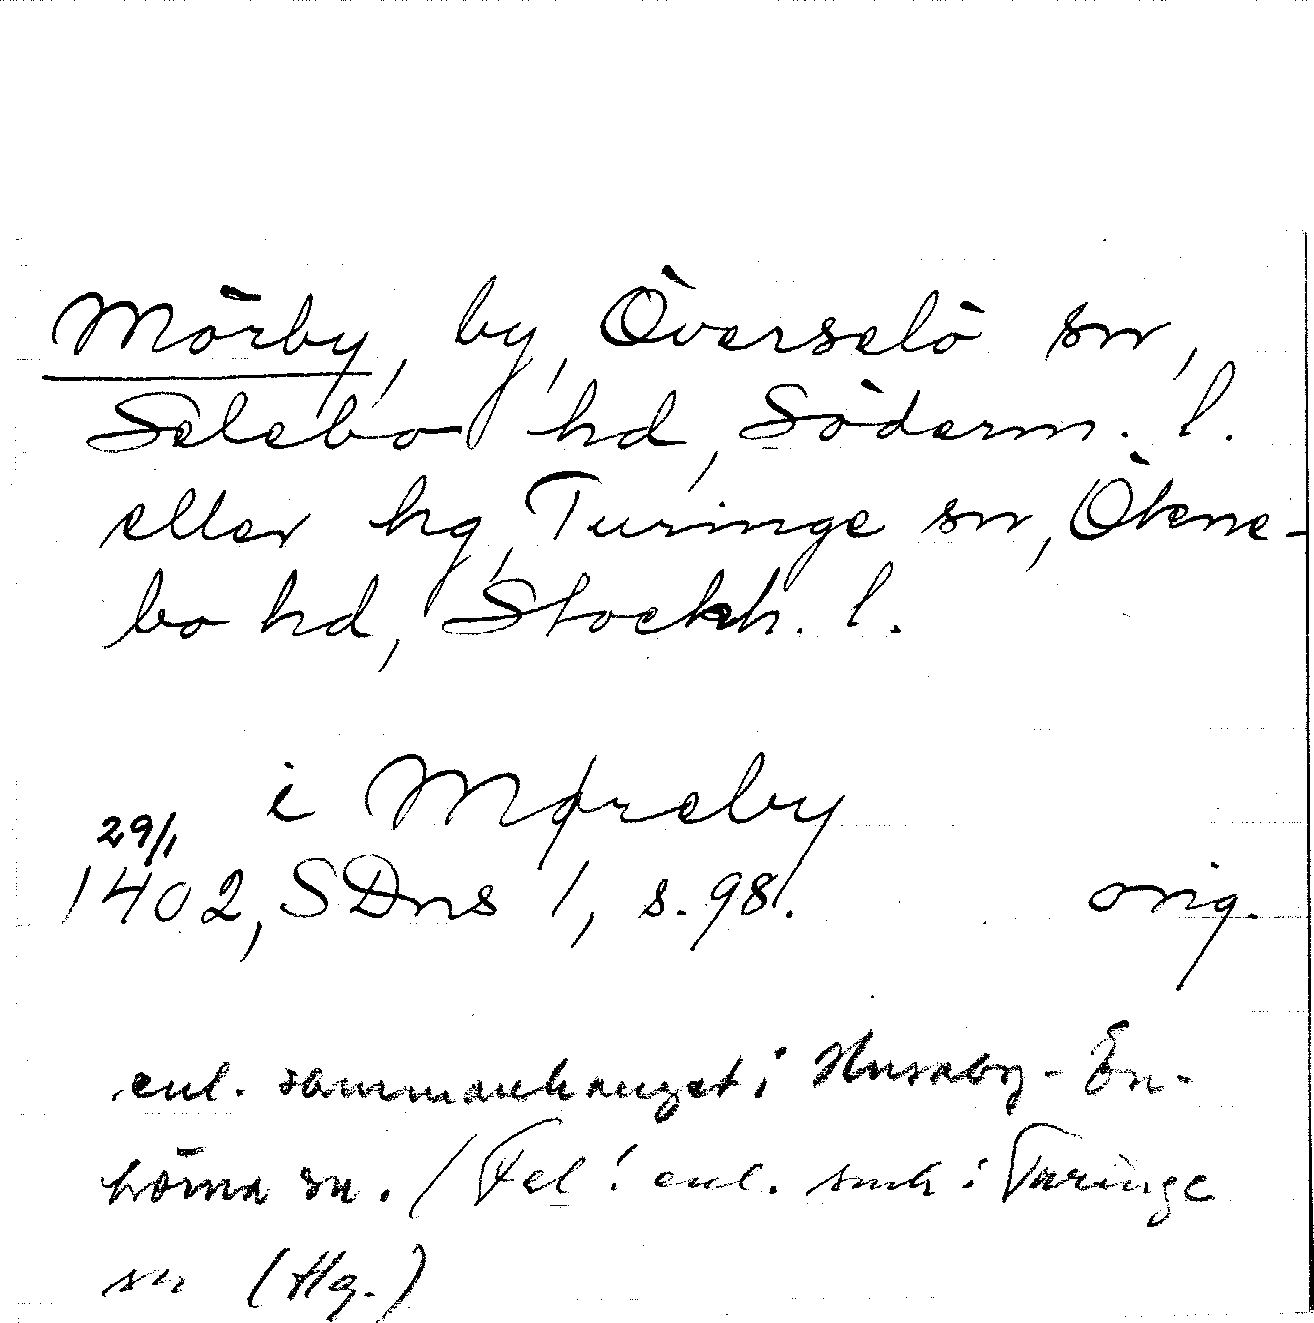 Mörby, by, Överselö sn,
Selebo hd, Söderm. l.
eller hg, Turinge sn, Ökne-
bo hd, Stockh. l.
i Møreby
29/1
1402, SDns 1, s. 98. orig.
enl. sammanhanget i Husaby-En-
hörna sn. / Fel! enl. smh i Turinge
sn (Hg.)